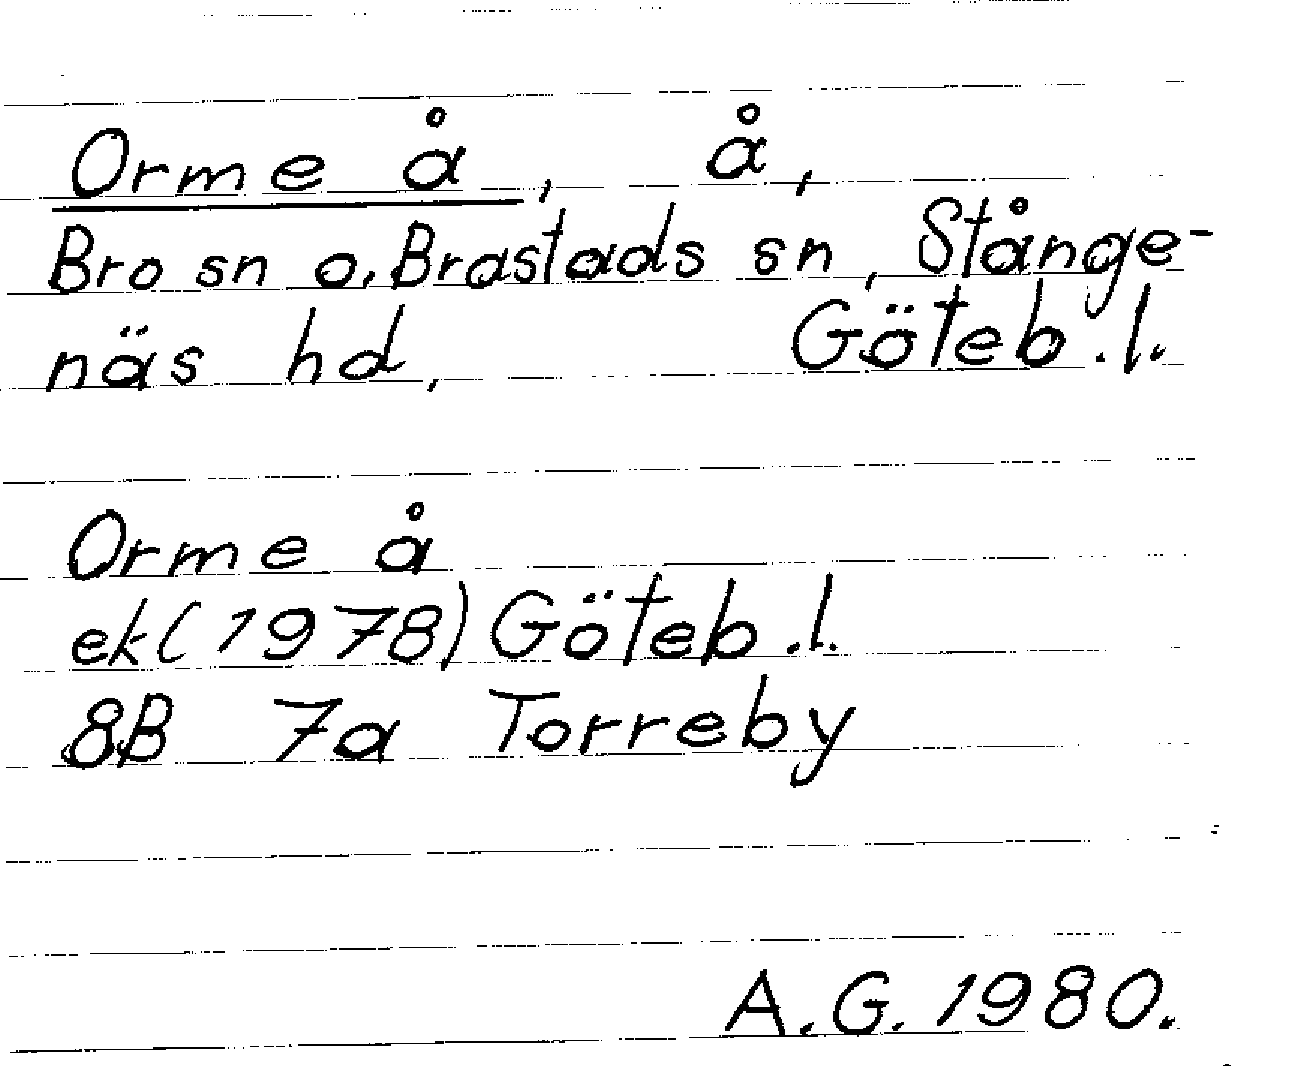 Orme å, å,
Bro sn o. Brastads sn, Stånge-
näs hd, Göteb.l.
Orme å
ek (1978) Göteb.l.
8B 7a Torreby
A.G. 1980.